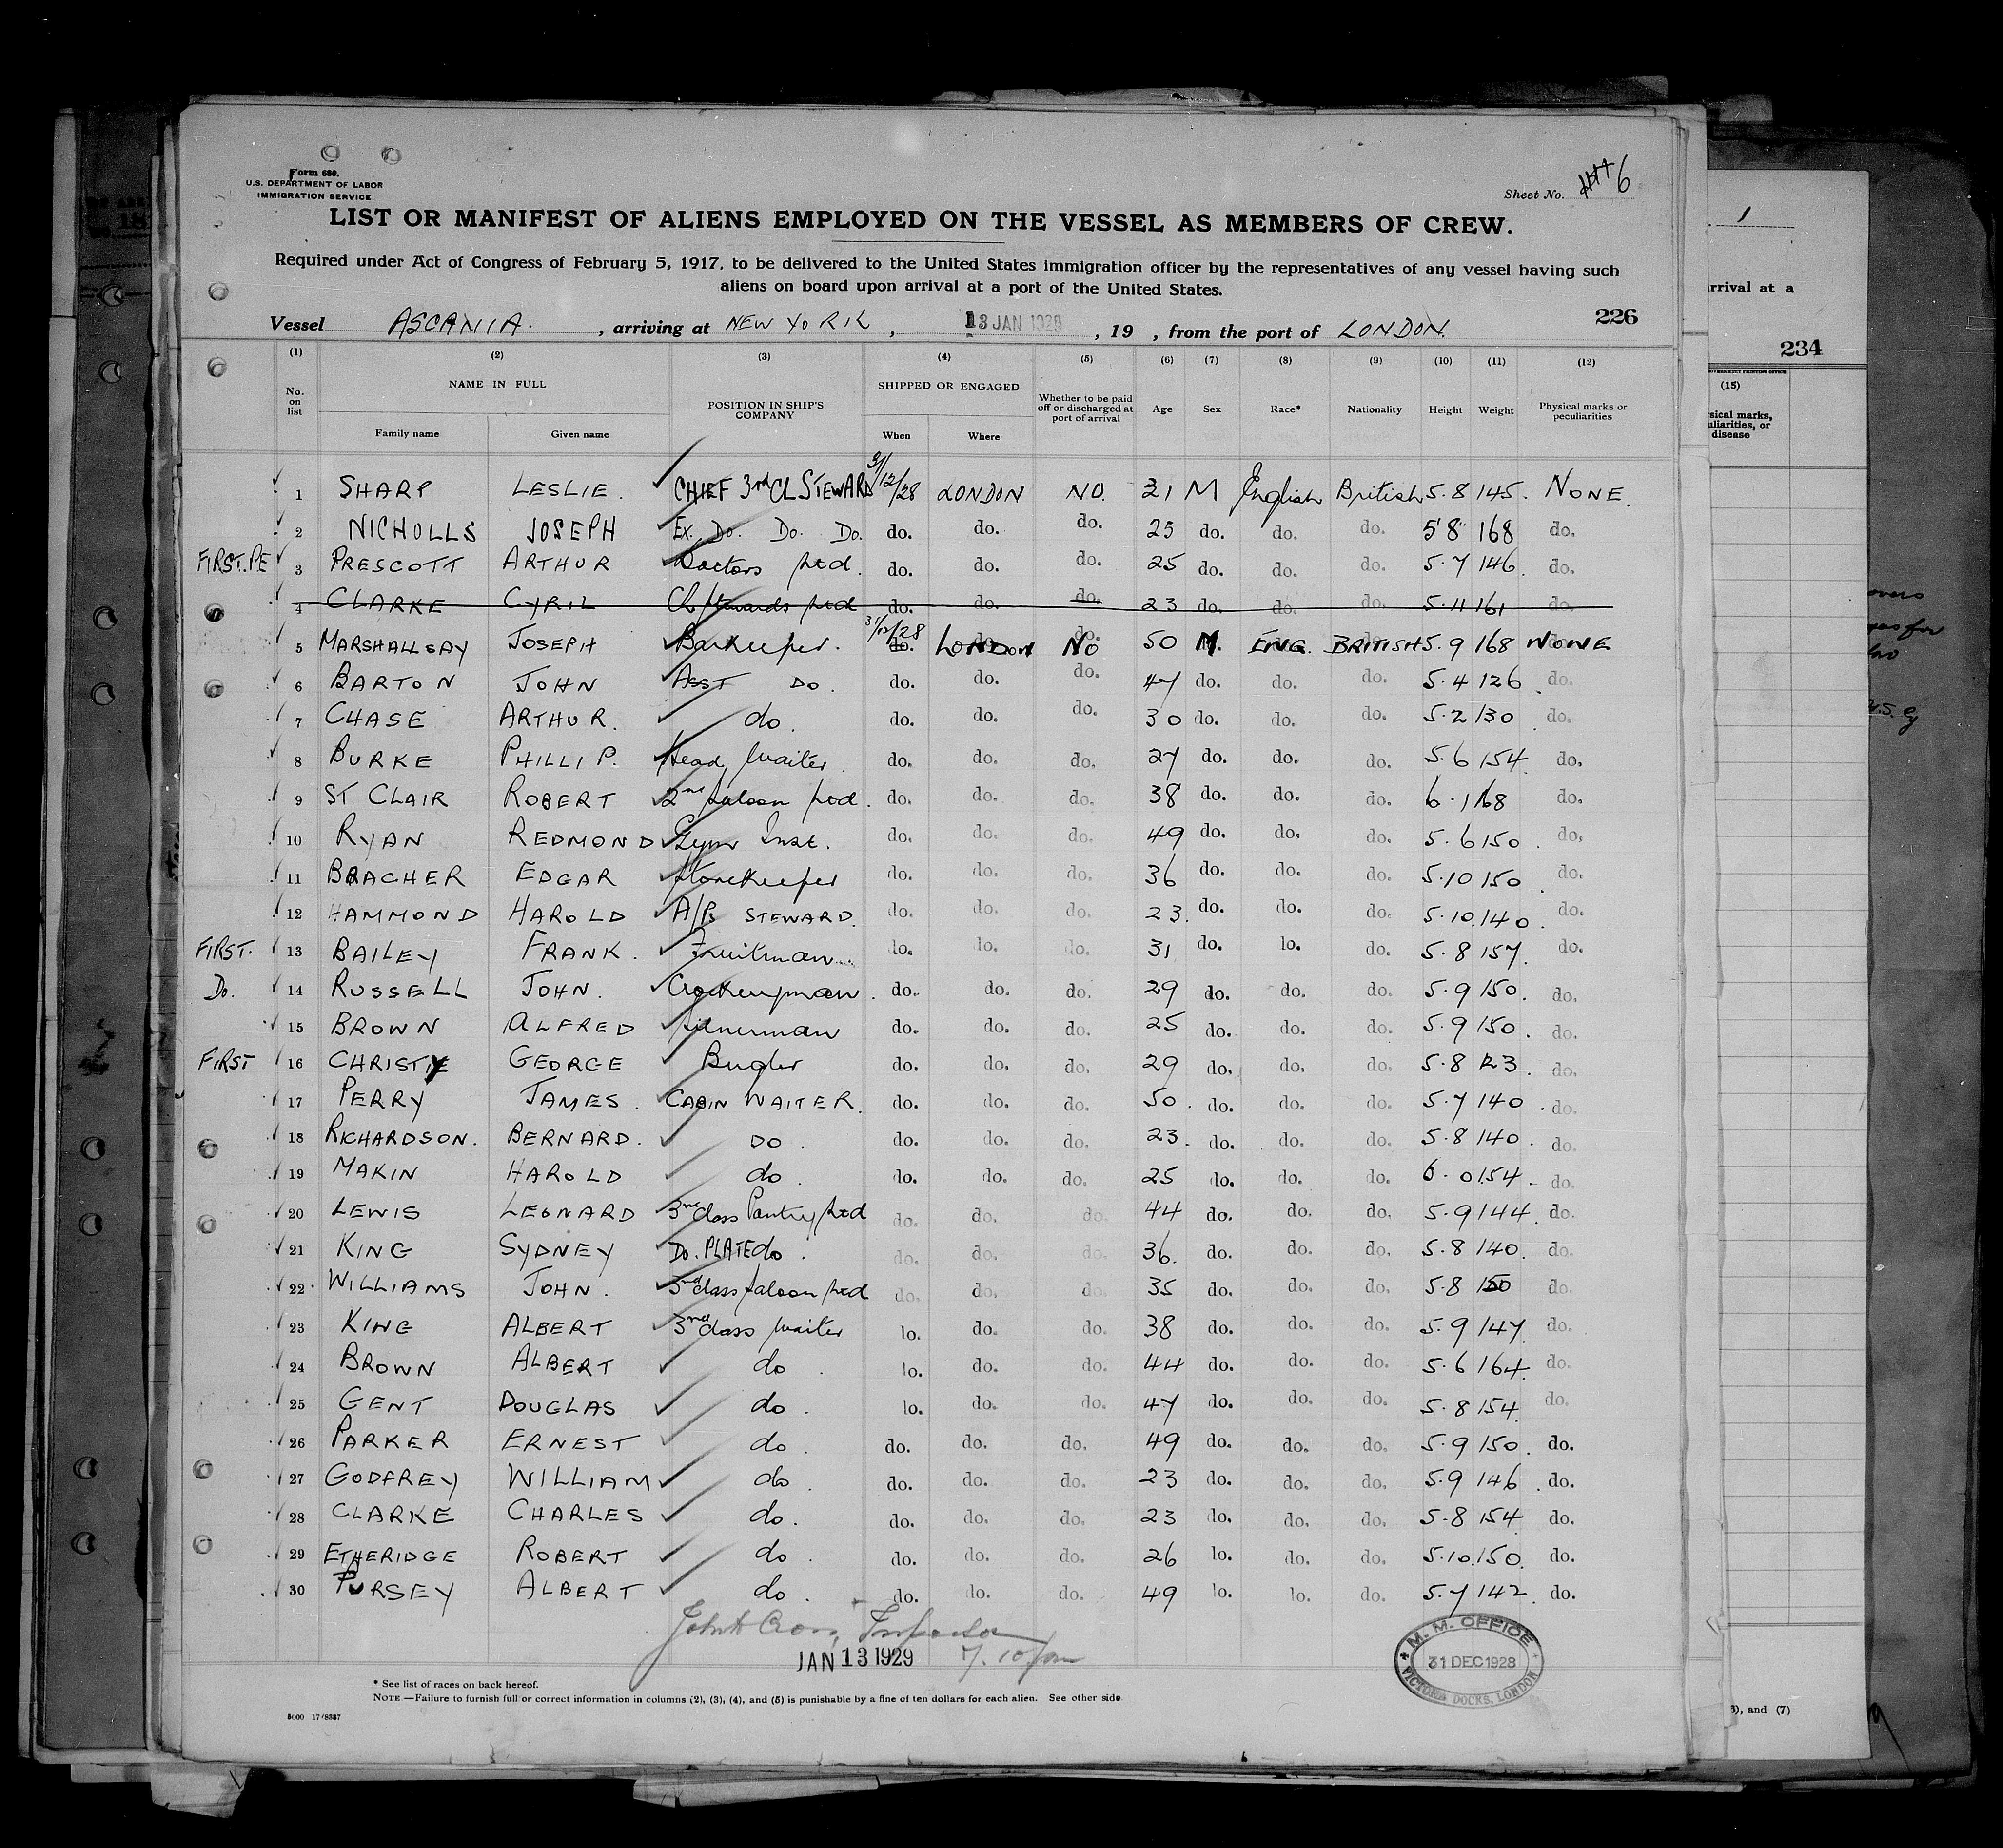 Form 680.
U.S. DEPARTMENT OF LABOR
IMMIGRATION SERVICE
Sheet No. 6
LIST OR MANIFEST OF ALIENS EMPLOYED ON THE VESSEL AS MEMBERS OF CREW.
Required under Act of Congress of February 5, 1917, to be delivered to the United States immigration officer by the representatives of any vessel having such
aliens on board upon arrival at a port of the United States.
226
Vessel ASCANIA. , arriving at NEW YORK , 13 JAN 1929 , 19 , from the port of LONDON.
(1) (2) (3) (4) (5) (6) (7) (8) (9) (10) (11) (12)
No. on list NAME IN FULL Family name Given name POSITION IN SHIP'S COMPANY SHIPPED OR ENGAGED When Where Whether to be paid off or discharged at port of arrival Age Sex Race* Nationality Height Weight Physical marks or peculiarities
1 SHARP LESLIE. CHIEF 3rd CL STEWARD 31/12/28 LONDON NO. 31 M English British 5.8 145. NONE.
2 NICHOLLS JOSEPH Ex. Do. Do. Do. do. do. do. 25 do. do. do. 5'8" 168 do.
FIRST.PE 3 PRESCOTT ARTHUR Doctors std. do. do. do. 25 do. do. do. 5.7 146. do.
4 CLARKE CYRIL Ch Stewards std do. do. do. 23 do. do. do. 5.11 161 do.
5 MARSHALLSAY JOSEPH Barkeeper. 31/12/28 LONDON NO 50 M. ENG. BRITISH 5.9 168 NONE
6 BARTON JOHN ASST DO. do. do. do. 47 do. do. do. 5.4 126. do.
7 CHASE ARTHUR. do. do. do. do. 30 do. do. do. 5.2 130 do.
8 BURKE PHILLIP. Head Waiter. do. do. do. 27 do. do. do. 5.6 154. do.
9 ST CLAIR ROBERT 2nd Saloon std. do. do. do. 38 do. do. do. 6.1 168 do.
10 RYAN REDMOND Gym Inst. do. do. do. 49 do. do. do. 5.6 150. do.
11 BRACHER EDGAR Storekeeper do. do. do. 36 do. do. do. 5.10 150. do.
12 HAMMOND HAROLD A/B STEWARD. do. do. do. 23. do. do. do. 5.10. 140. do.
FIRST. 13 BAILEY FRANK. Fruitman.. do. do. do. 31 do. lo. do. 5.8 157. do.
Do. 14 RUSSELL JOHN. Crockeryman. do. do. do. 29 do. do. do. 5.9 150. do.
15 BROWN ALFRED Silverman do. do. do. 25 do. do. do. 5.9 150. do.
FIRST 16 CHRISTIE GEORGE Bugler do. do. do. 29 do. do. do. 5.8 123. do.
17 PERRY JAMES. CABIN WAITER. do. do. do. 50. do. do. do. 5.7 140. do.
18 RICHARDSON. BERNARD. DO. do. do. do. 23. do. do. do. 5.8 140. do.
19 MAKIN HAROLD do. do. do. do. 25 do. do. do. 6.0 154. do.
20 LEWIS LEONARD 3rd class Pantry std do. do. do. 44 do. do. do. 5.9 144. do.
21 KING SYDNEY Do. PLATE do. do. do. do. 36. do. do. do. 5.8 140. do.
22. WILLIAMS JOHN. 3rd class saloon std do. do. do. 35 do. do. do. 5.8 150 do.
23 KING ALBERT 3rd class waiter lo. do. do. 38 do. do. do. 5.9 147. do.
24 BROWN ALBERT do. lo. do. do. 44 do. do. do. 5.6 164. do.
25 GENT DOUGLAS do. lo. do. do. 47 do. do. do. 5.8 154. do.
26 PARKER ERNEST do. do. do. do. 49 do. do. do. 5.9 150. do.
27 GODFREY WILLIAM do. do. do. do. 23 do. do. do. 5.9 146. do.
28 CLARKE CHARLES do. do. do. do. 23 do. do. do. 5.8 154. do.
29 ETHERIDGE ROBERT do. do. do. do. 26 lo. do. do. 5.10. 150. do.
30 PURSEY ALBERT do. do. do. do. 49 lo. lo. do. 5.7 142. do.
Inspector
JAN 13 1929 7.10 pm
M. M. OFFICE
31 DEC 1928
VICTORIA DOCKS, LONDON
* See list of races on back hereof.
NOTE.—Failure to furnish full or correct information in columns (2), (3), (4), and (5) is punishable by a fine of ten dollars for each alien. See other side.
5000 17/8387
1
rrival at a
234
(15)
sical marks,
uliarities, or
disease
U.S.
), and (7)